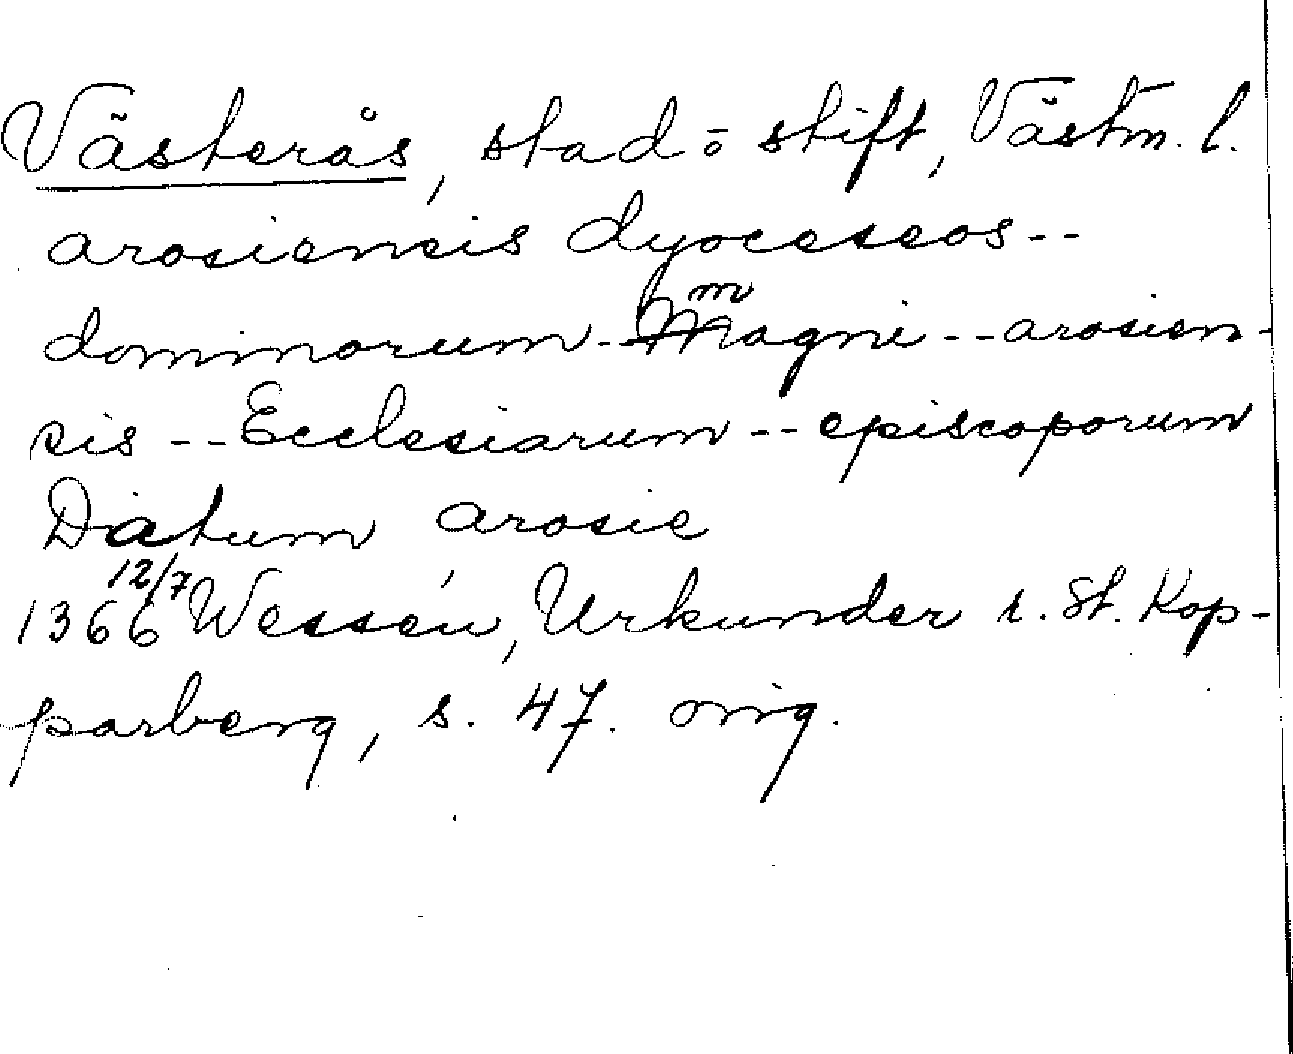 Västerås, stad o stift, Västm. l.
arosiensis dyoceseos--
dominorum--magni--arosien-
sis--Ecclesiarum--episcoporum
Datum arosie
1366 12/7 Wessén, Urkunder r. St. Kop-
parberg, s. 47. orig.